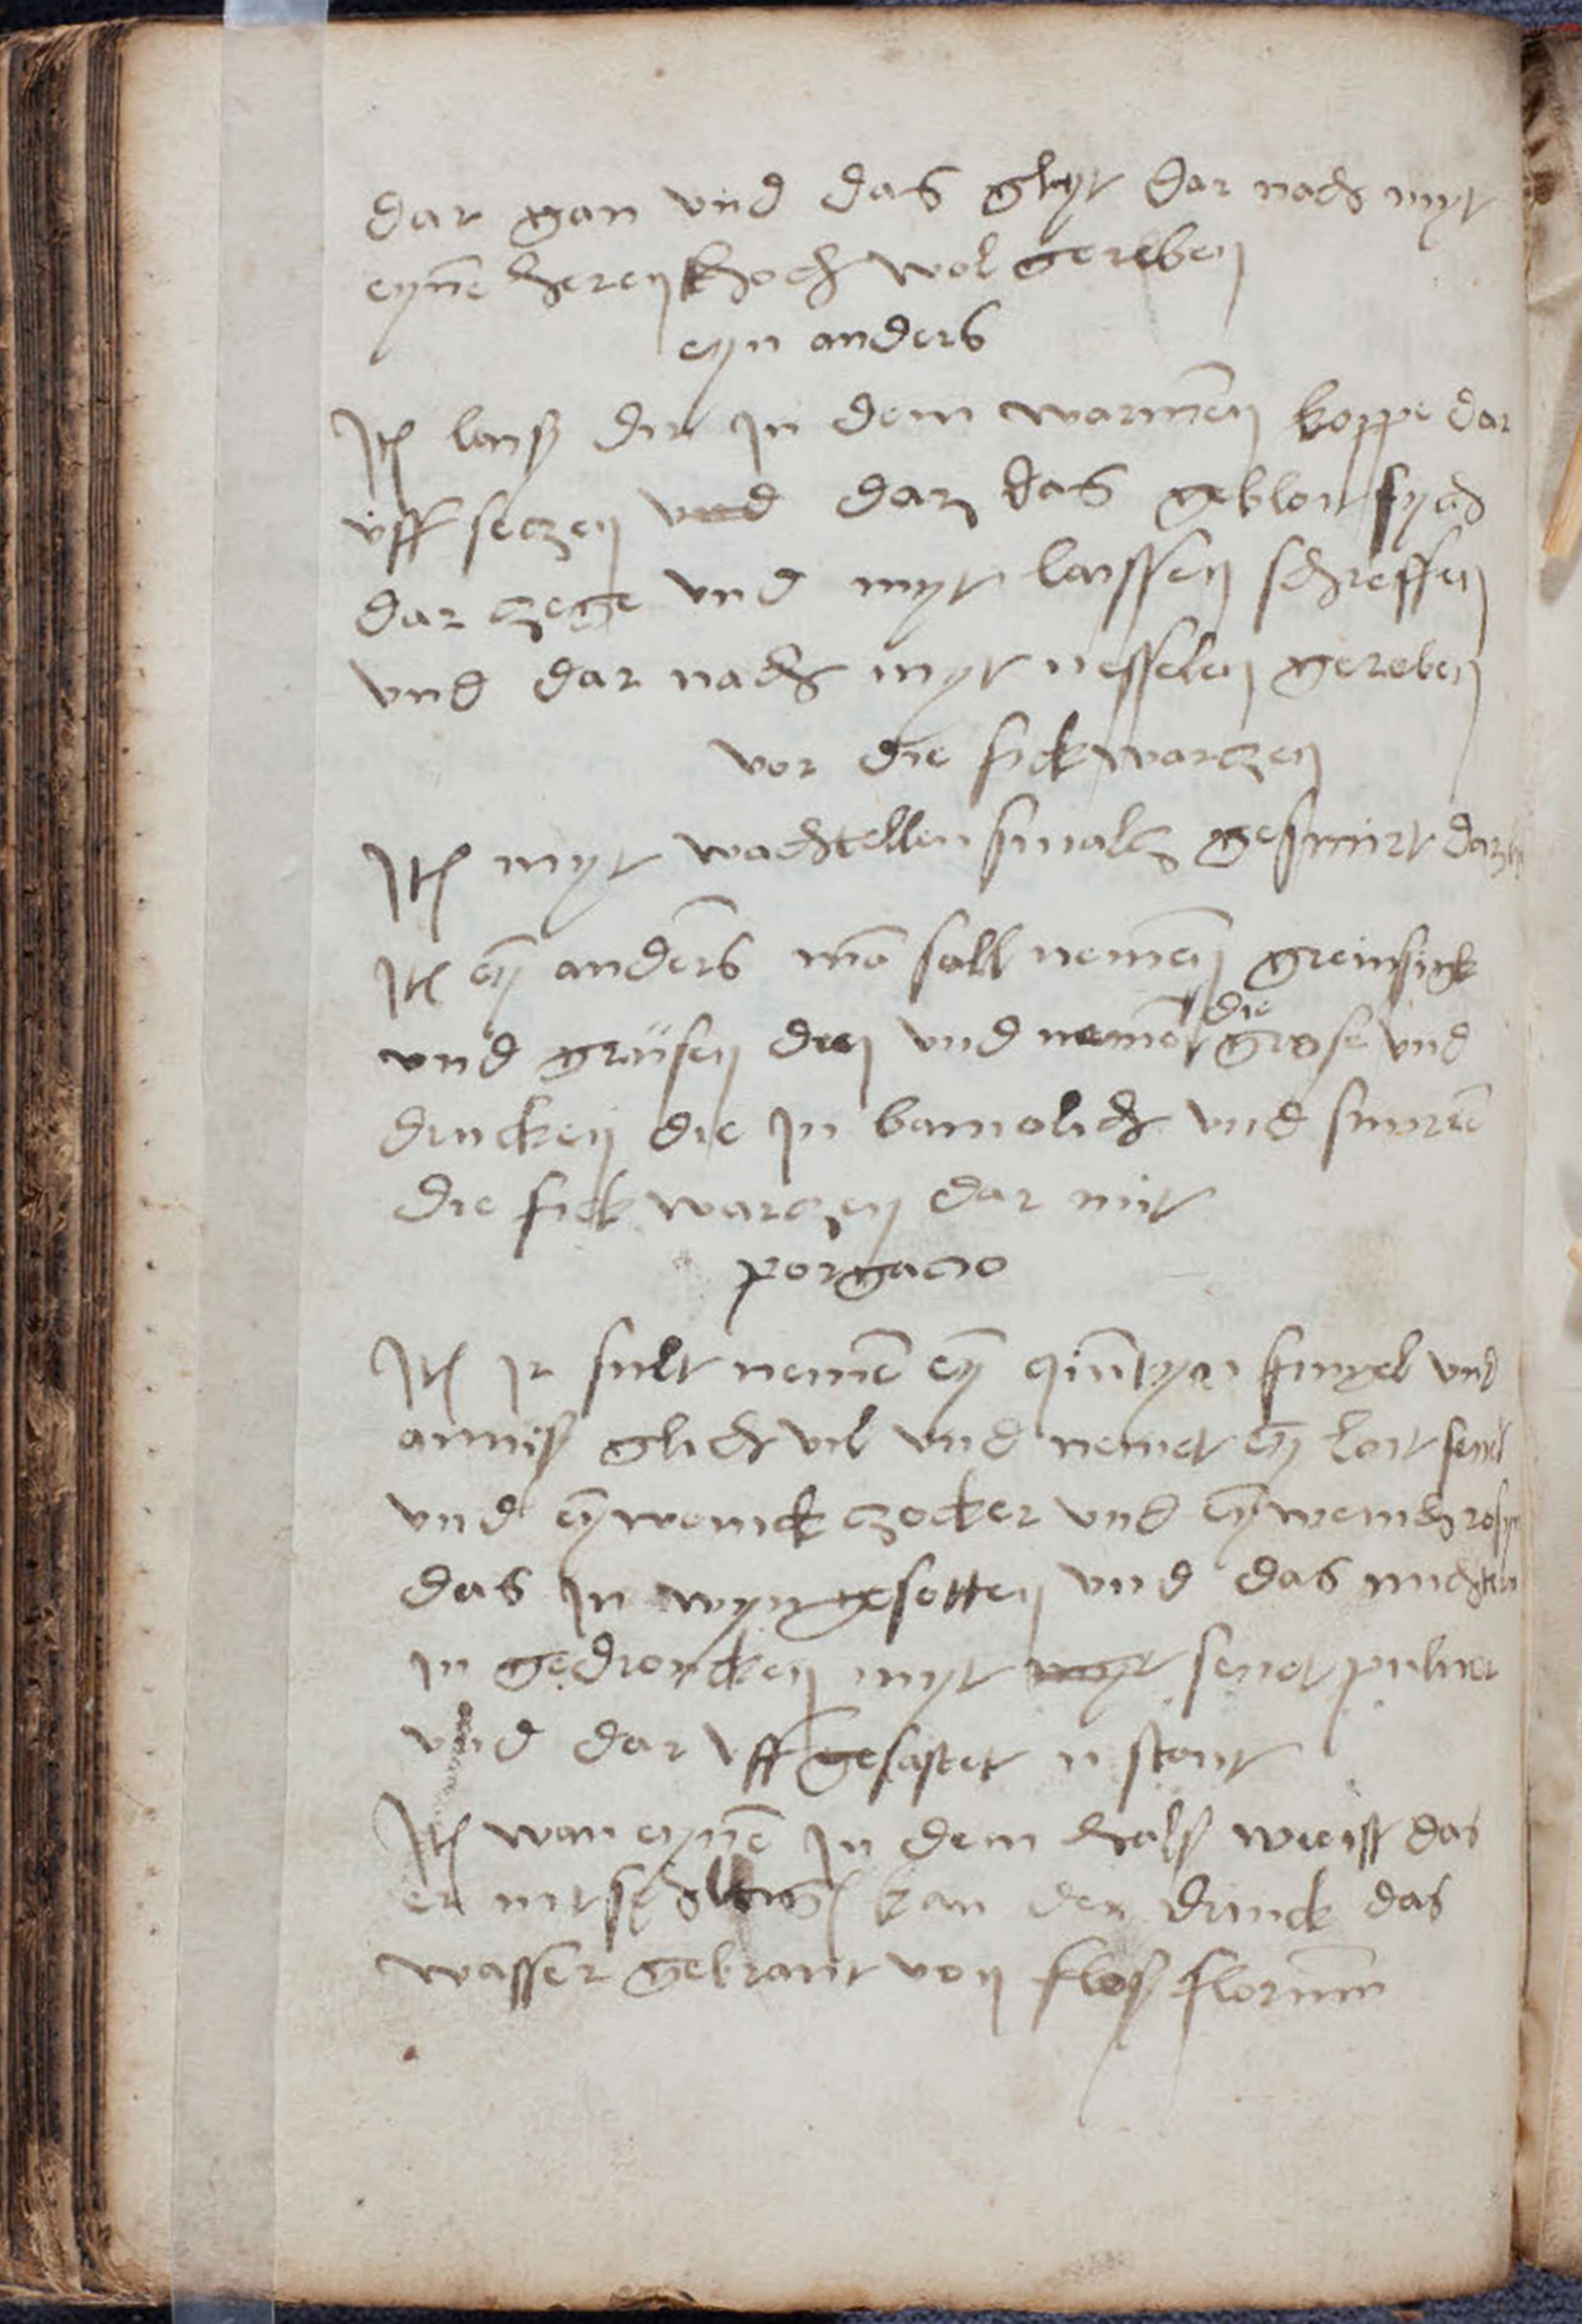 dar gan vnd das glyt dar nach myt
eyne herenn doch wol gereben
eyn anders
Jt laiß dir jn dem warmen koppe dar
uff seczen vnd daz das geblout sych
dar zege vnd myt laissen schreffen
vnd dar nach myt nesselen gereben
vor die fick warczen
Jt myt wachtellen smalcz gesmirt
Jt ey anders ma sall nemen greinsick
vnd grüsen den vnd neme die grose vnd
drucken die jn bamolich vnd smyre
die fick warczen dar mit
porgacio
Jt jr sult neme ey quityn fingel vnd
anniß glich vil vnd nemet ey loit senet
vnd ey wenick zocker vnd ey wenich
das jn wyn gesotten vnd das nuchtern
jn gedroncken myt senet puluer
vnd dar vff gefastet ii stont
Jt wan eyne jn dem halß wee ist das
er nit kan der drinck das
wasser gebrant von floß florum